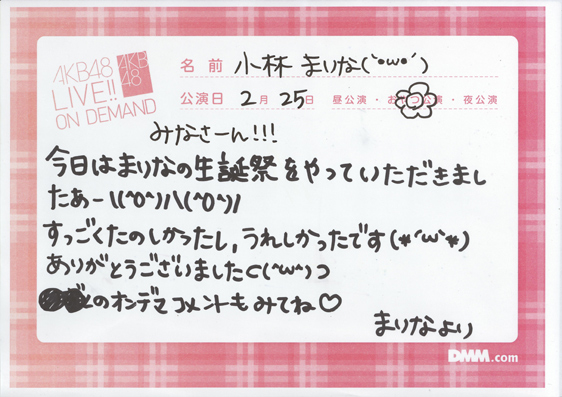 AKB48
LIVE!!
ON DEMAND
AKB
48
名前 小林 まりな(`•ω•´)
公演日 2月 25日 昼公演・おやつ公演・夜公演
みなさーん!!!
今日はまりなの生誕祭をやっていただきまし
たあー\(^O^)/\(^O^)/
すっごくたのしかったし,うれしかったです(*´ω`*)
ありがとうございました⊂(^ω^)⊃
のオンデマコメントもみてね♡
まりなより
DMM.com